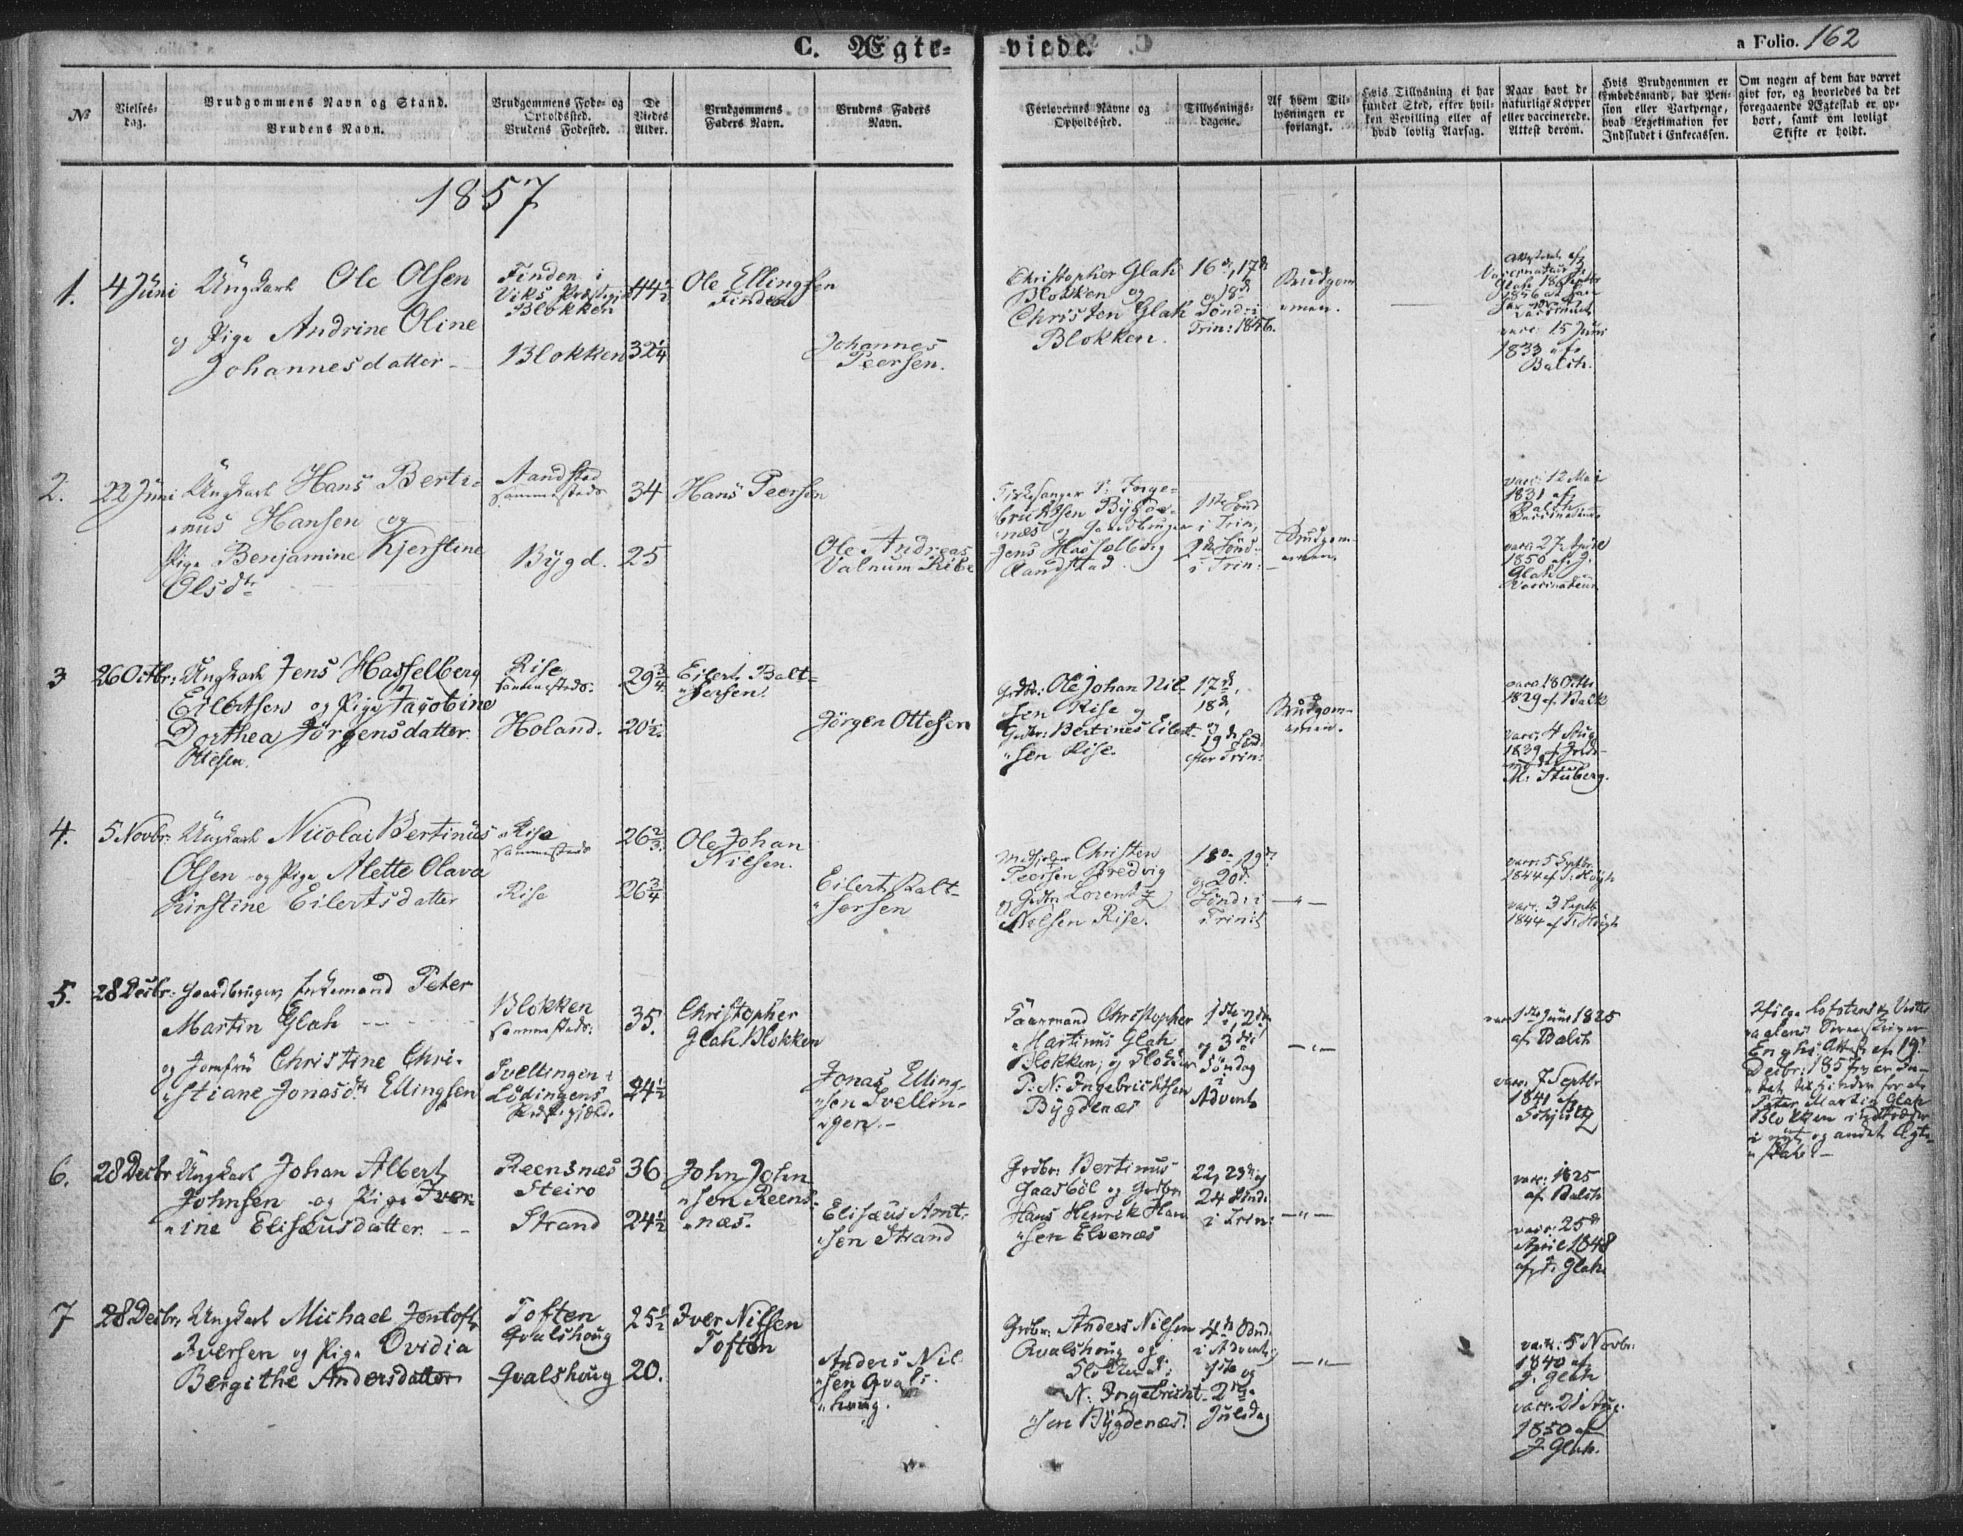 C. Ægte=
viede.
a Folio. 162
No
Vielses-
dag.
Brudgommens Navn og Stand.
Brudens Navn.
Brudgommens Føde- og
Opholdssted.
Brudens Fødested.
De
Viedes
Alder.
Brudgommens
Faders Navn.
Brudens Faders
Navn.
Forlovernes Navne og
Opholdssted.
Tillysnings-
dagene.
Af hvem Til-
lysningen er
forlangt.
Hvis Tillysning ei har
fundet Sted, efter hvil-
ken Bevilling eller af
hvad lovlig Aarsag.
Naar havt de
naturlige Kopper
eller vaccinerede.
Attest derom.
Hvis Brudgommen er
Embedsmand, har Pen-
sion eller Vartpenge,
hvad Legitimation for
Indskudet i Enkecassen.
Om nogen af dem har været
gift før, og hvorledes da det
foregaaende Ægteskab er op-
hørt, samt om lovligt
Skifte er holdt.
1857
1.
4 Juni
Ungkarl Ole Olsen
og Pige Andrine Oline
Johannesdatter
Finden i
Viks Præstegjæld
Blokken
Blokken
44½
32¼
Ole Ellingsen
Finden
Johannes
Peersen.
Christopher Glah
Blokken og
Christen Glah
Blokken.
16de, 17de
og 18de
Sønd: i
Trin: 1856.
Brudgom-
men.
vacc: 15 Juni
1833 af
Balch.
2.
22 Juni
Ungkarl Hans Berti-
nus Hansen og
Pige Benjamine Kjerstine
Olsdtr
Sandstad
sammesteds.
Bygd.
34
25
Hans Peersen
Ole Andreas
Valnum Ribe
Kirkesanger P: Inge-
brichtsen Bygde-
næs og Gaardbruger
Jens Hasselberg
Sandstad
1ste Sønd
i Trin,
2den Sønd
i Trin:
Brudgom-
men.
vacc: 12 Mai
1831 af
Balch
Vaccinateur
vacc: 27 April
1850 af J.
Glah
Vaccinateur
3
26 Octbr:
Ungkarl Jens Hasselberg
Eilertsen og Pige Jacobine
Dorthea Jörgensdatter
Ottesen.
Rise
sammesteds.
Holand.
29¾
20½.
Eilert Balt-
sersen.
Jörgen Ottesen
Grdbr: Ole Johan Nil-
sen Rise og
Grdbr: Bertines Eilert-
sen Rise.
17de,
18de,
19de Sønd:
efter Trin:
Brudgom-
men.
vacc: 18 Octbr
1829 af Balch
vacc: 4 Aug
1839 af Jorde-
moder
M: Stuberg.
4.
5 Novbr:
Ungkarl Nicolai Bertinus
Olsen og Pige Alette Olava
Kirstine Eilertsdatter
Rise
sammesteds
Rise
26⅔
26¾
Ole Johan
Nielsen.
Eilert Balt-
sersen
Christen
Peersen Bredvig
og Grdbr: Lorentz
Nilsen Rise.
18de, 19de
og 20de
Sønd: i
Trinit
-"-
vacc: 5 Septbr
1844 af P: Høigh
vacc: 3 Septbr
1844 af P: Høigh
5.
28 Decbr:
Gaardbruger Enkemand Peter
Martin Glah
og Jomfru Christine Chri-
stiane Jonasdtr Ellingsen
Blokken
sammesteds.
Tvellingen i
Lödingens
Præstegjæld.
35.
24½
Christopher
Glah Blokken
Jonas Elling-
sen Tvellin-
gen.
Faarmand Christopher
Martinus Glah
Blokken, og Klokker
P: N: Ingebrichtsen
Bygdenæs
1ste, 2den
og 3die
Søndag
i
Advent
-"-
vacc: 1ste Juni 1825
af Balch
vacc: 7 Septbr
1841 af
Schjultz
Ifølge Lofotens & Veste-
raalens Sorenskriver
Enghs Attest af 19
Decbr: 1857 er In-
tet til Hinder for at
Peter Martin Glah
Blokken indtræder
i nyt og andet Ægte-
skab.
6.
28 Decbr
Ungkarl Johan Albert
Johnsen og Pige Iver-
ine Elisæusdatter
Reensnæs
Steiro
Strand
36
24½
John John-
sen Reens-
næs.
Elisæus Arnt-
sen Strand
Grdbr: Bertinus
Gaasbøl og Grdbr
Hans Henrik Han-
sen Elvenæs
22, 23de og
24 Sønd:
i Trin:
-"-
vacc: 1825
af Balch
vacc: 25de
April 1848
af J: Glah
7
28 Decbr
Ungkarl Michael Jentoft
Iversen og Pige Ovidia
Bergithe Andersdatter
Toften
Qvalshoug
Qvalshoug
25½
20.
Iver Nilsen
Toften
Anders Nil-
sen Qvals-
houg.
Grdbr: Anders Nilsen
Qvalshoug og
Klokker P:
N: Ingebricht-
sen Bygdenæs.
4de Sønd:
i Advent,
1ste og
2den
Juledag
-"-
vacc: 5 Novbr:
1840 af
J. Glah
vacc: 21 Aug:
1850 af
J. Glah.